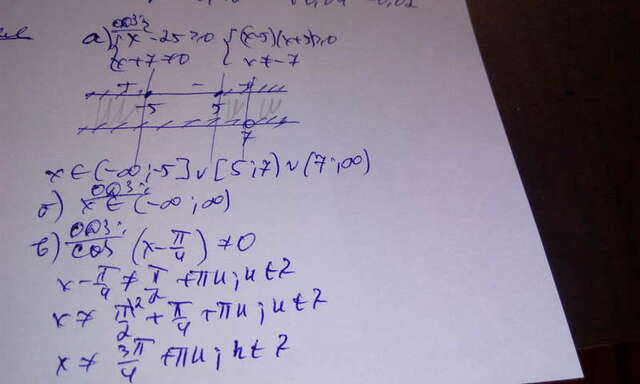 а) ООФ:
{ x² - 25 ≥ 0 { (x-5)(x+5) ≥ 0
{ x + 7 ≠ 0 { x ≠ -7
+ - +
-5 5
7
x ∈ (-∞; -5] ∪ [5; 7) ∪ (7; ∞)
б) ООФ: x ∈ (-∞; ∞)
в) ООФ:
cos (x - π/4) ≠ 0
x - π/4 ≠ π/2 + πn; n ∈ Z
x ≠ π/2 + π/4 + πn; n ∈ Z
x ≠ 3π/4 + πn; n ∈ Z